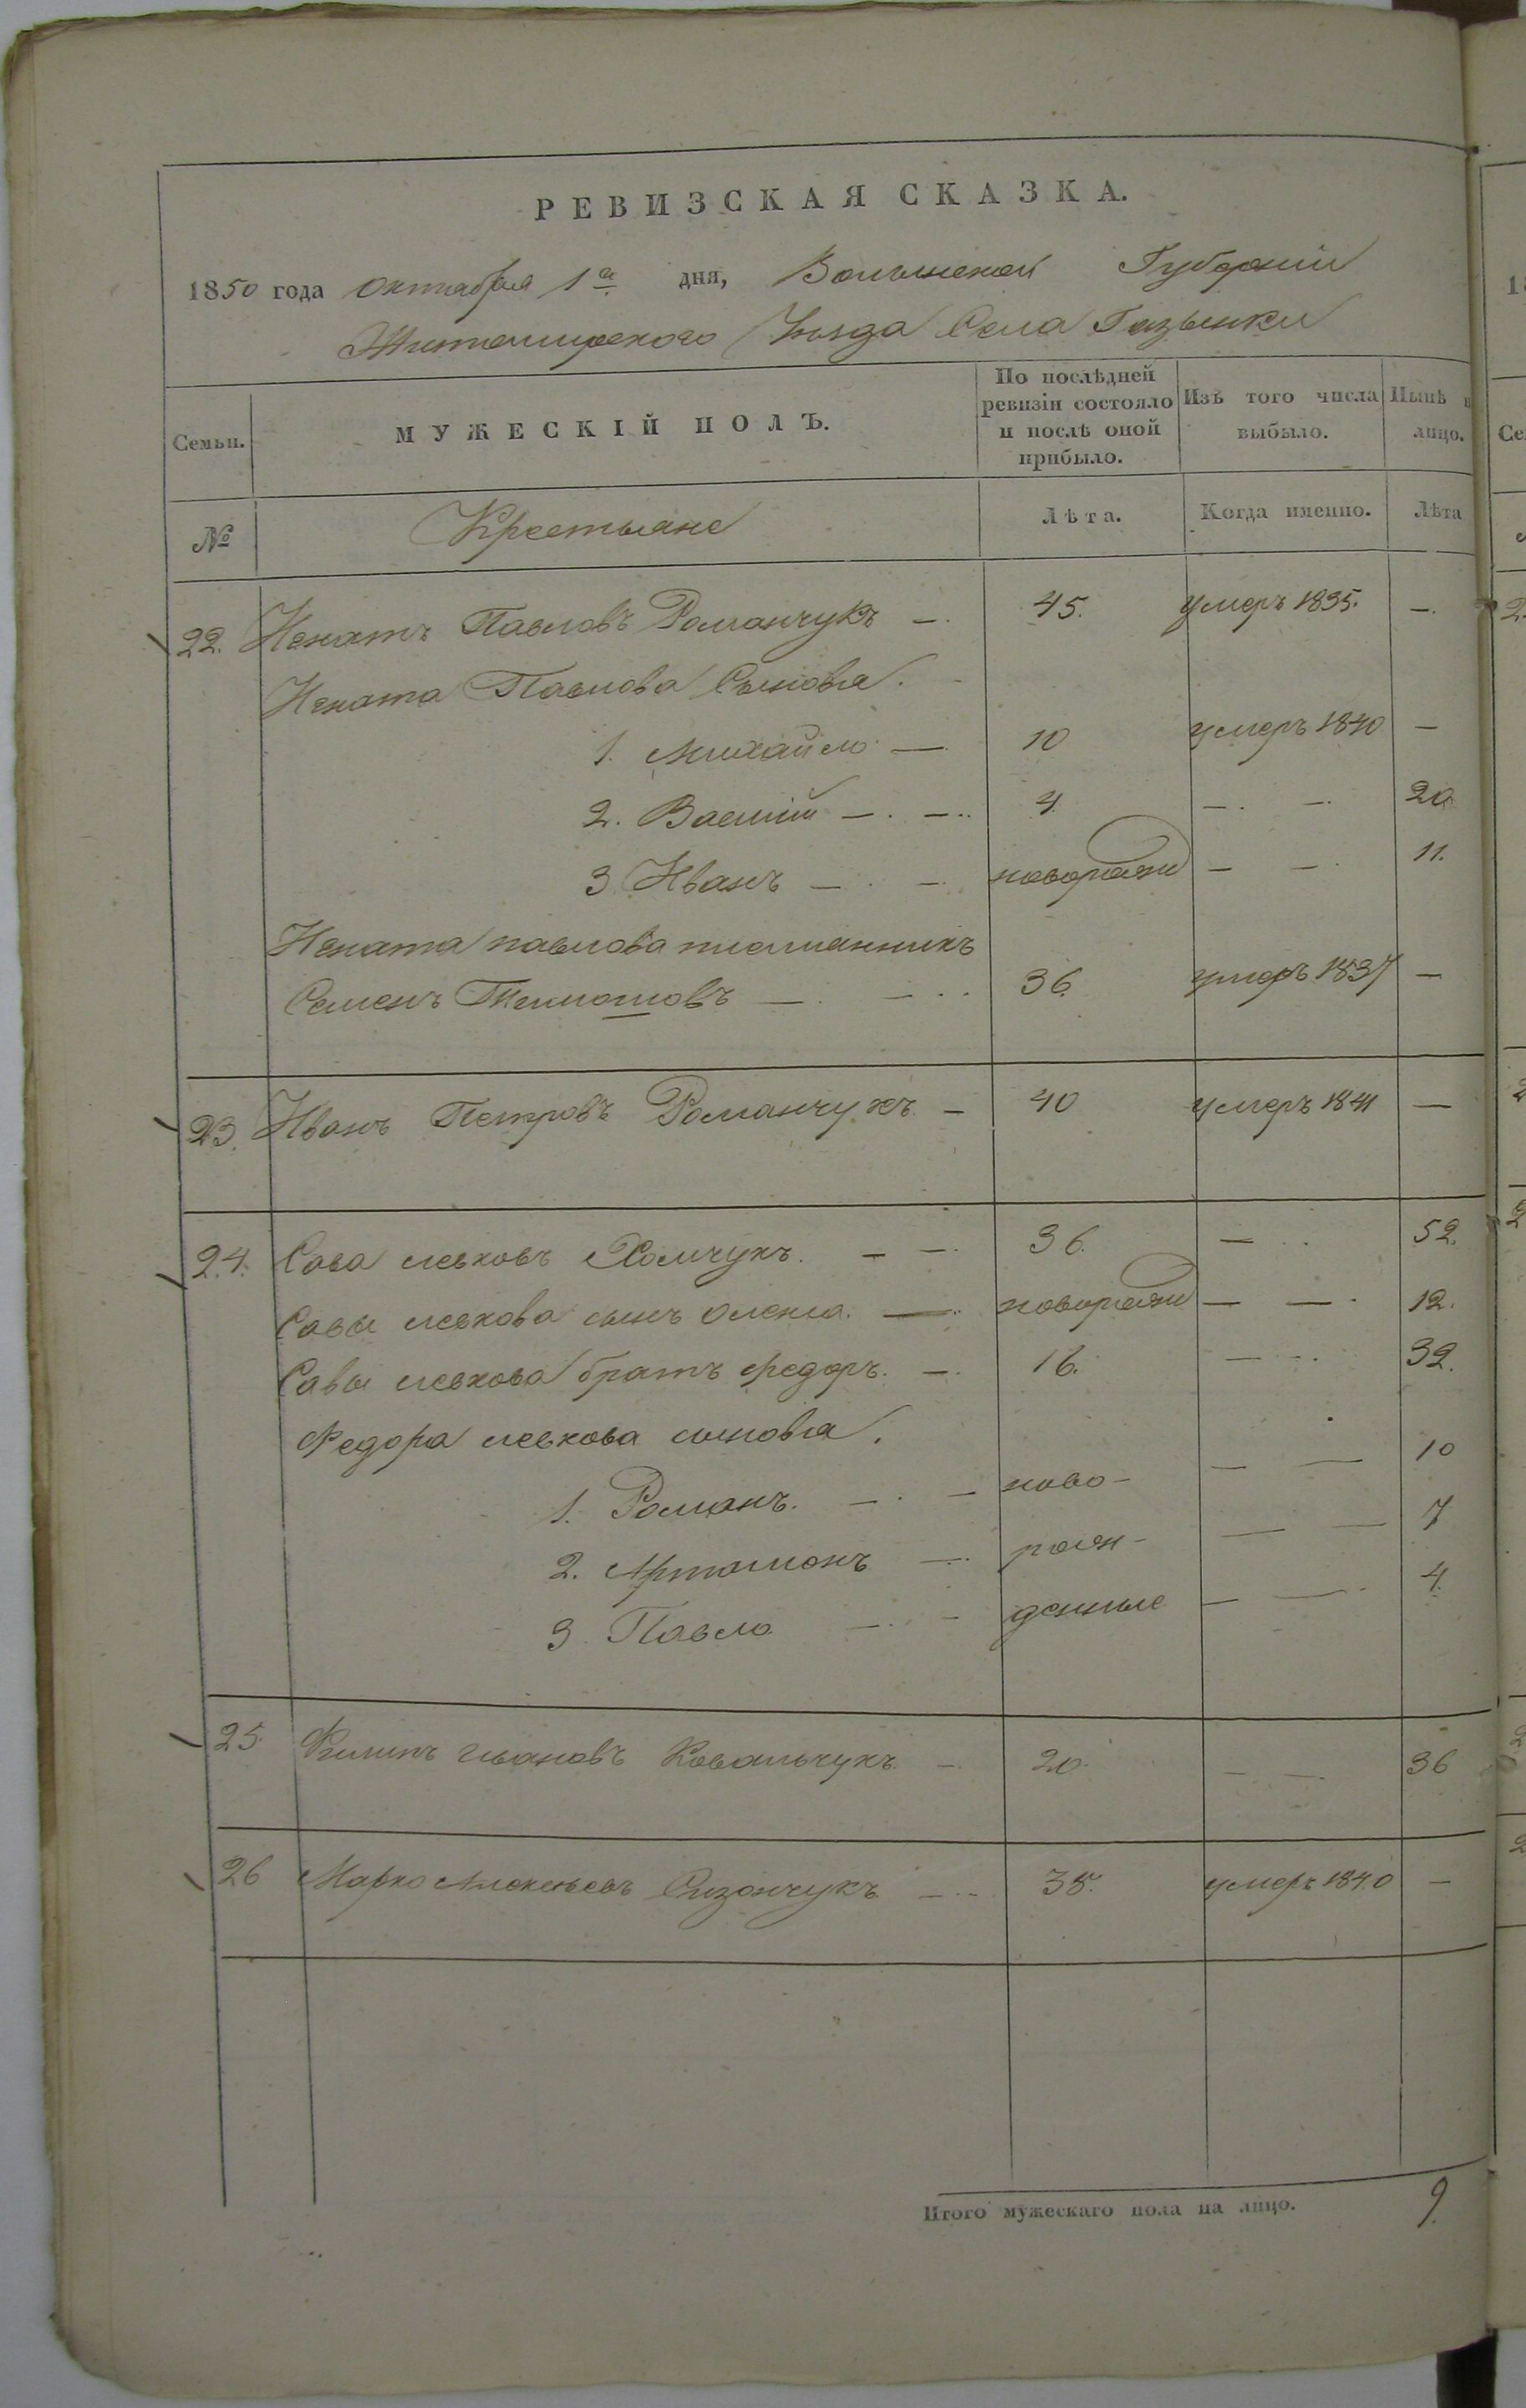 РЕВИЗСКАЯ СКАЗКА.
1850 года октября 1го дня, Волынской Губернии
Житомирского Уезда Села Газынки
Семьи. МУЖЕСКІЙ ПОЛЪ. По послѣдней ревизіи состояло и послѣ оной прибыло. Изъ того числа выбыло. Нынѣ в лицо.
№ Крестьяне Лѣта. Когда именно. Лѣта
22. Игнатъ Павловъ Романчукъ — 45. умеръ 1835. —
Игната Павлова Сыновья.
1. Михайло — 10 умеръ 1840 —
2. Василій — 4. — — 20
3 Иванъ — — новорожд — — 11.
Игната павлова племянникъ
Семенъ — 36. умеръ 1837 —
23. Иванъ Петровъ Романчукъ — 40 умеръ 1841 —
24. Сава левковъ Хомчукъ. — — 36. — 52.
Савы левкова сынъ Олекса. — новорожд — — 12.
Савы левкова братъ Федоръ. — 16. — 32.
Федора левкова сыновья.
1. Романъ. — — ново- — — 10
2. Артамонъ — рож- — — 7
3. Павло — — денные — — 4.
25. Филипъ ивановъ Ковальчукъ — 20. — — 36
26 Марко Сизончукъ — 35. умеръ 1840 —
Итого мужескаго пола на лицо. 9.